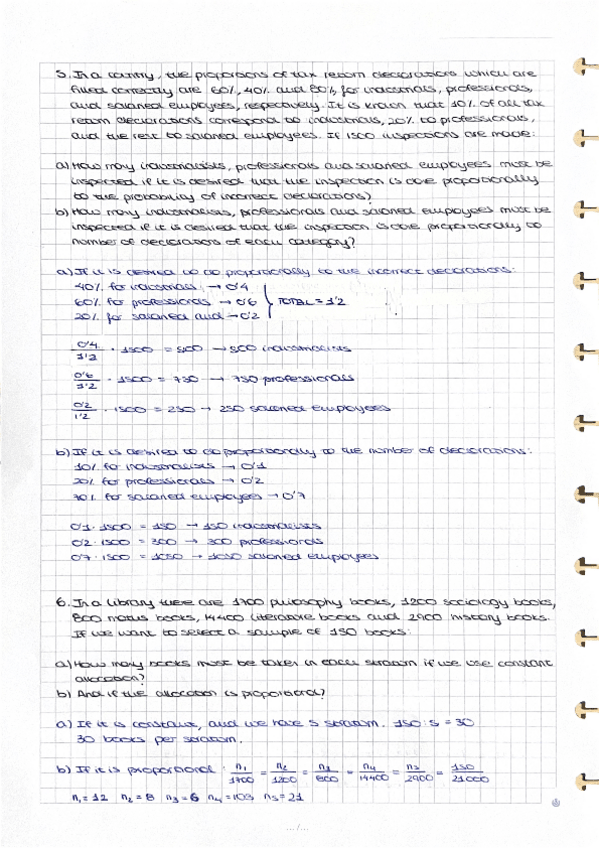 5. In a country, the proportions of tax return declarations which are
filled correctly are 60%, 40% and 80%, for industrials, professionals,
and salaried employees, respectively. It is known that 10% of all tax
return declarations correspond to industrials, 20% to professionals,
and the rest to salaried employees. If 1500 inspections are made:
a) How many industrialists, professionals and salaried employees must be
inspected if it is desired that the inspection is done proportionally
to the probability of incorrect declarations?
b) How many industrialists, professionals and salaried employees must be
inspected if it is desired that the inspection is done proportionally to
number of declarations of each category?
a) If it is desired to do proportionally to the incorrect declarations:
40% for industrials → 0'4
60% for professionals → 0'6 } TOTAL = 1'2
20% for salaried and → 0'2
0'4/1'2 · 1500 = 500 → 500 industrialists
0'6/1'2 · 1500 = 750 → 750 professionals
0'2/1'2 · 1500 = 250 → 250 salaried employees
b) If it is desired to do proportionally to the number of declarations:
10% for industrialists → 0'1
20% for professionals → 0'2
70% for salaried employees → 0'7
0'1 · 1500 = 150 → 150 industrialists
0'2 · 1500 = 300 → 300 professionals
0'7 · 1500 = 1050 → 1050 salaried employees
6. In a library there are 1700 philosophy books, 1200 sociology books,
800 maths books, 14400 literature books and 2900 history books.
If we want to select a sample of 150 books:
a) How many books must be taken in each stratum if we use constant
allocation?
b) And if the allocation is proportional?
a) If it is constant, and we have 5 stratum. 150:5 = 30
30 books per stratum.
b) If it is proportional: n1/1700 = n2/1200 = n3/800 = n4/14400 = n5/2900 = 150/21000
n1 = 12 n2 = 8 n3 = 6 n4 = 103 n5 = 21
.../...